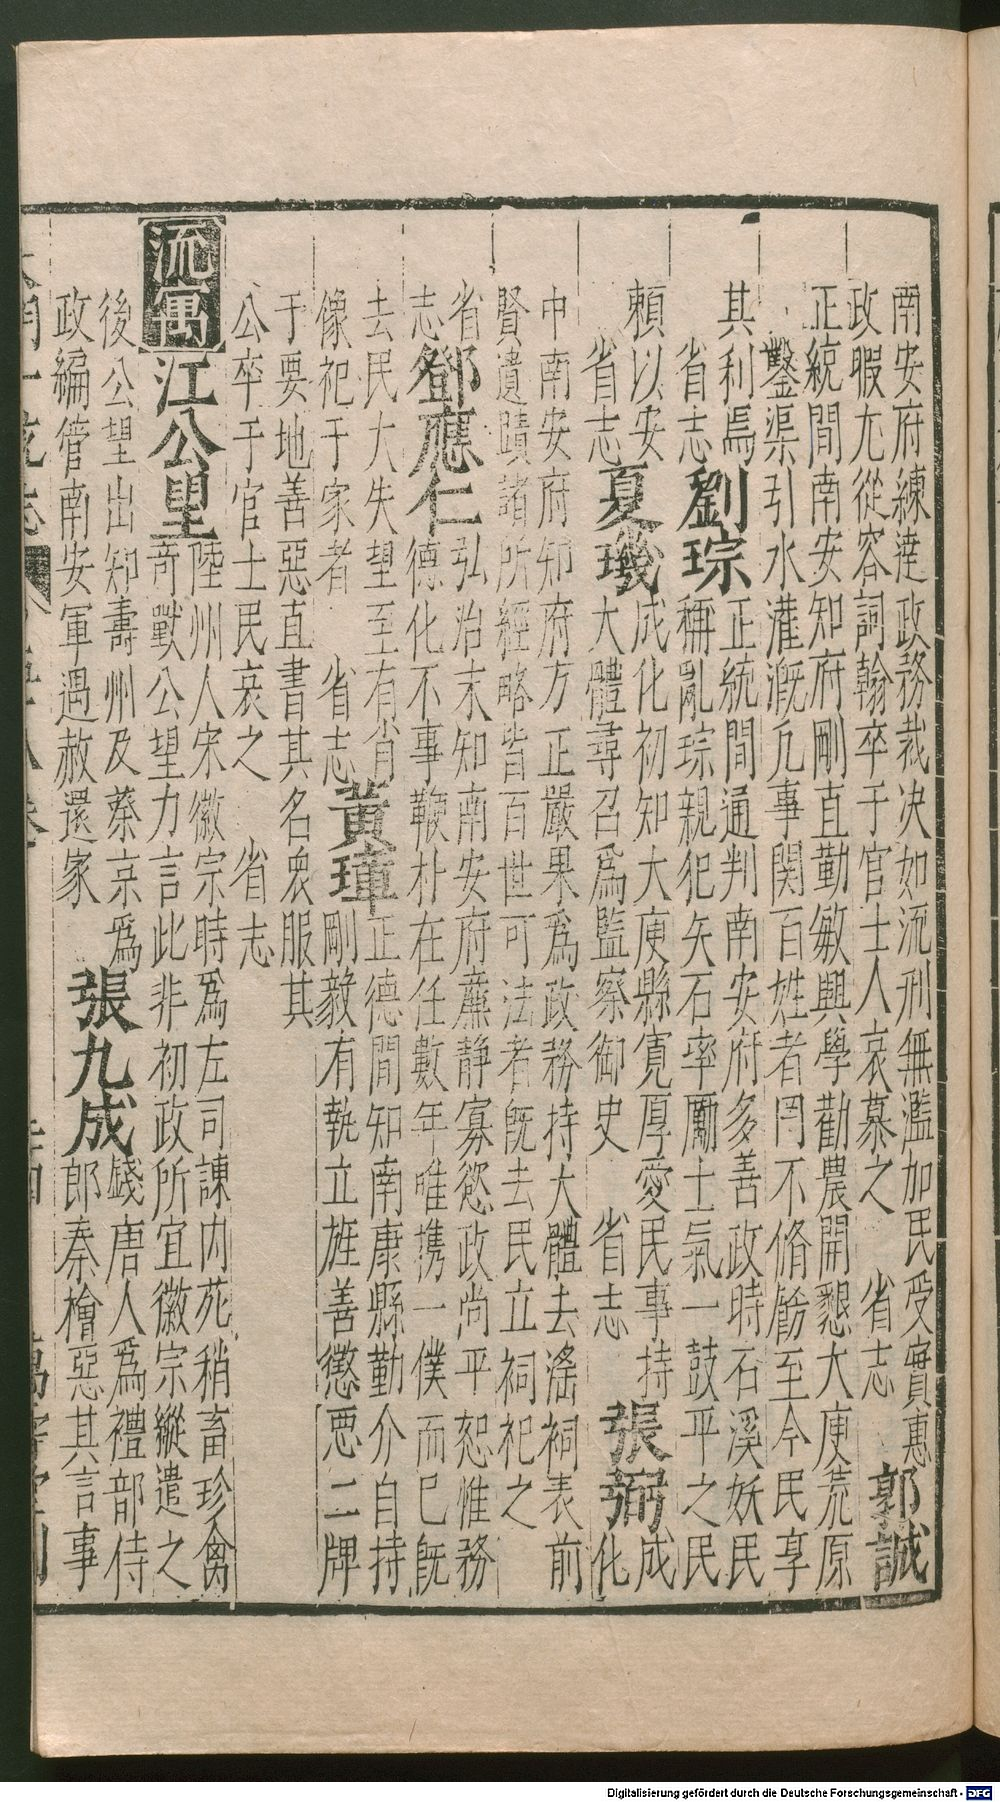 南安府練達政務裁决如流刑無濫加民受實惠
政暇尤從容詞翰卒于官士人哀慕之 省志
郭誠
正統間南安知府剛直勤敏興學勸農開懇大庾荒原
鑿渠引水灌溉凢事関百姓者罔不脩飭至今民享
其利焉
省志
劉琮
正統間通判南安府多善政時石溪妖民
稱亂琮親犯矢石率勵士氣一鼓平之民
頼以安
省志
夏璣
成化初知大庾縣寛厚愛民事持
大體尋召爲監察御史 省志
張弼
成
化
中南安府知府方正嚴果爲政務持大體去滛祠表前
賢遺蹟諸所經略皆百世可法者旣去民立祠祀之
省
志
鄧應仁
弘治末知南安府薦静寡慾政尚平恕惟務
德化不事鞭朴在任數年唯携一僕而巳旣
去民大失望至有肖
像祀于家者 省志
黃璋
正德間知南康縣勤介自持
剛毅有執立旌善懲惡二牌
于要地善惡直書其名衆服其
公卒于官士民哀之 省志
流寓
江公望
陸州人宋徽宗時爲左司諫内苑稍畜珍禽
奇獸公望力言此非初政所宜徽宗縱遣之
後公望出知壽州及蔡京爲
政編管南安軍遇赦還家
張九成
錢唐人爲禮部侍
郎秦檜惡其言事
Digitalisierung gefördert durch die Deutsche Forschungsgemeinschaft - DFG